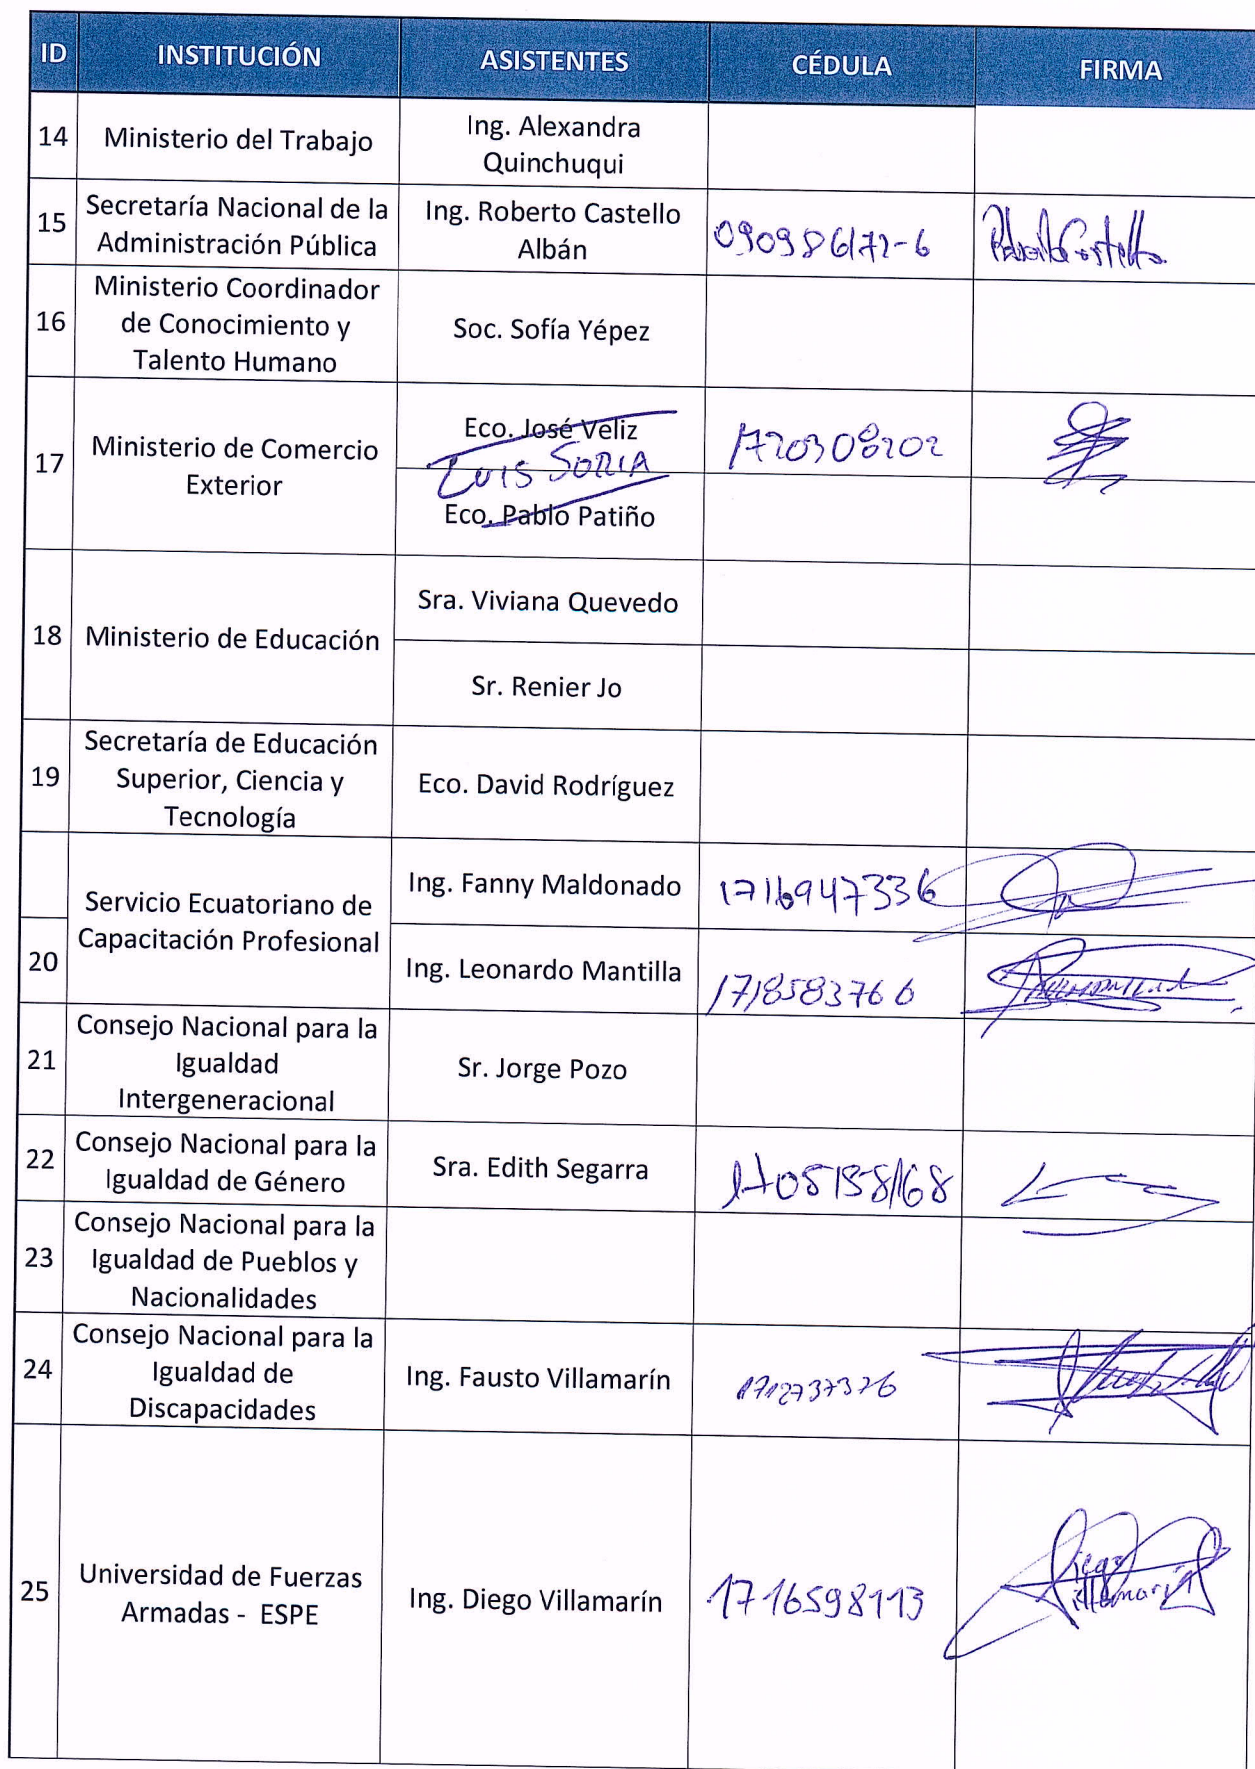 ID INSTITUCIÓN ASISTENTES CÉDULA FIRMA
14 Ministerio del Trabajo
Ing. Alexandra
Quinchuqui
15
Secretaría Nacional de la
Administración Pública
Ing. Roberto Castello
Albán
090986172-6
Roberto Castello
16
Ministerio Coordinador
de Conocimiento y
Talento Humano
Soc. Sofía Yépez
17
Ministerio de Comercio
Exterior
Eco. José Veliz
LUIS SORIA
Eco. Pablo Patiño
1720308202
18 Ministerio de Educación
Sra. Viviana Quevedo
Sr. Renier Jo
19
Secretaría de Educación
Superior, Ciencia y
Tecnología
Eco. David Rodríguez
20
Servicio Ecuatoriano de
Capacitación Profesional
Ing. Fanny Maldonado
1716947336
Ing. Leonardo Mantilla
1718583766
21
Consejo Nacional para la
Igualdad
Intergeneracional
Sr. Jorge Pozo
22
Consejo Nacional para la
Igualdad de Género
Sra. Edith Segarra
23
Consejo Nacional para la
Igualdad de Pueblos y
Nacionalidades
24
Consejo Nacional para la
Igualdad de
Discapacidades
Ing. Fausto Villamarín
1712737376
25
Universidad de Fuerzas
Armadas - ESPE
Ing. Diego Villamarín
1716598113
Diego
Villamarín